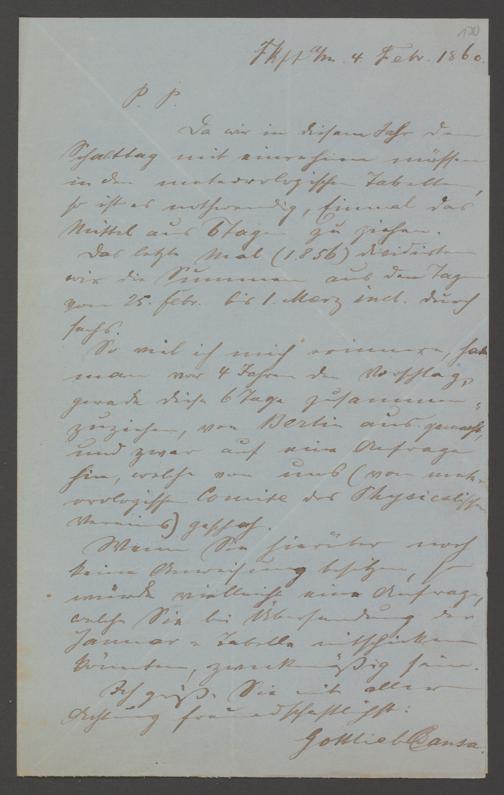 130
Fkft a/m. 4. Febr. 1860.
P. P.
Da wir in diesem Jahr den
Schalttag mit einrechnen müssen
in den meteorologischen Tabellen,
so ist es nothwendig, Einmal das
Mittel aus 6 Tagen zu ziehen.
Das letzte Mal (1856) dividirten
wir die Summen aus den Tagen
vom 25. Febr. bis 1. März incl. durch
sechs.
So viel ich mich erinnere, hat
man vor 4 Jahren den Vorschlag,
gerade diese 6 Tage zusammen-
zuziehen, von Berlin aus gemacht,
und zwar auf eine Anfrage
hin, welche von uns (vom mete-
orologischen Comite des Physicalischen
Vereins) geschah.
Wenn Sie hierüber noch
keine Anweisung besitzen, so
würde vielleicht eine Anfrage,
welche Sie bei Übersendung der
Januar-Tabelle mitschicken
könnten, zweckmäßig sein.
Ich grüße Sie mit aller
Achtung freundschaftlichst:
Gottlieb Cansa.